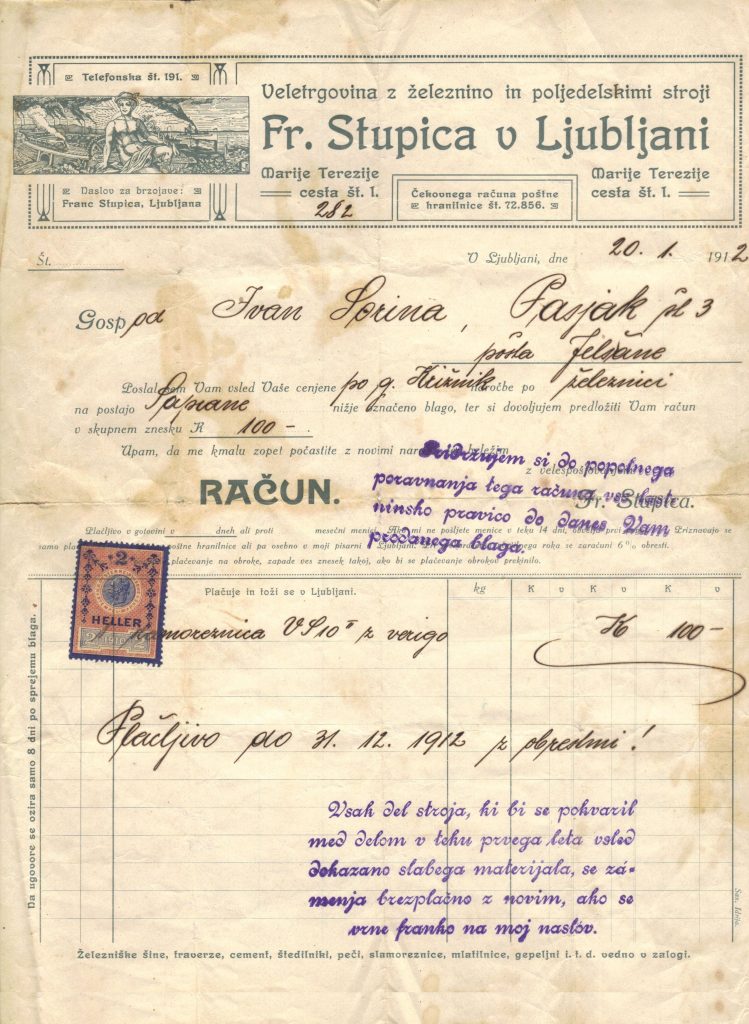 Telefonska št. 191.
Veletrgovina z železnino in poljedelskimi stroji
Fr. Stupica v Ljubljani
Marije Terezije
cesta št. 1.
Čekovnega računa poštne
hranilnice št. 72.856.
Marije Terezije
cesta št. 1.
Naslov za brzojave:
Franc Stupica, Ljubljana
282
Št.
V Ljubljani, dne 20. 1. 1912
Gospod Ivan Sorina, Pasjak št 3
pošta Jelšane
Poslal sem Vam vsled Vaše cenjene po g. Križnik naročbe po železnici
na postajo Sapiane nižje označeno blago, ter si dovoljujem predložiti Vam račun
v skupnem znesku K 100 -.
Upam, da me kmalu zopet počastite z novimi
z velespoštovanjem
Fr. Stupica.
Pridržujem si do popolnega
poravnanja tega računa vso last-
ninsko pravico do danes Vam
prodanega blaga.
RAČUN.
Plačljivo v gotovini v dneh ali proti mesečni menici. Ako mi ne pošljete menice v teku 14 dni, Priznavajo se
samo poštne hranilnice ali pa osebno v moji pisarni v Ljubljani. roka se zaračuni 6% obresti.
plačevanje na obroke, zapade ves znesek takoj, ako bi se plačevanje obrokov prekinilo.
2
HELLER
2 1910 2
Plačuje in toži se v Ljubljani.
kg K v K v K v
slamoreznica VS10 z verigo K 100 -
Plačljivo do 31. 12. 1912 z obrestmi!
Vsak del stroja, ki bi se pokvaril
med delom v teku prvega leta vsled
dokazano slabega materijala, se za-
menja brezplačno z novim, ako se
vrne franko na moj naslov.
Na ugovore se ozira samo 8 dni po sprejemu blaga.
Železniške šine, traverze, cement, štedilniki, peči, slamoreznice, mlatilnice, gepeljni i. t. d. vedno v zalogi.